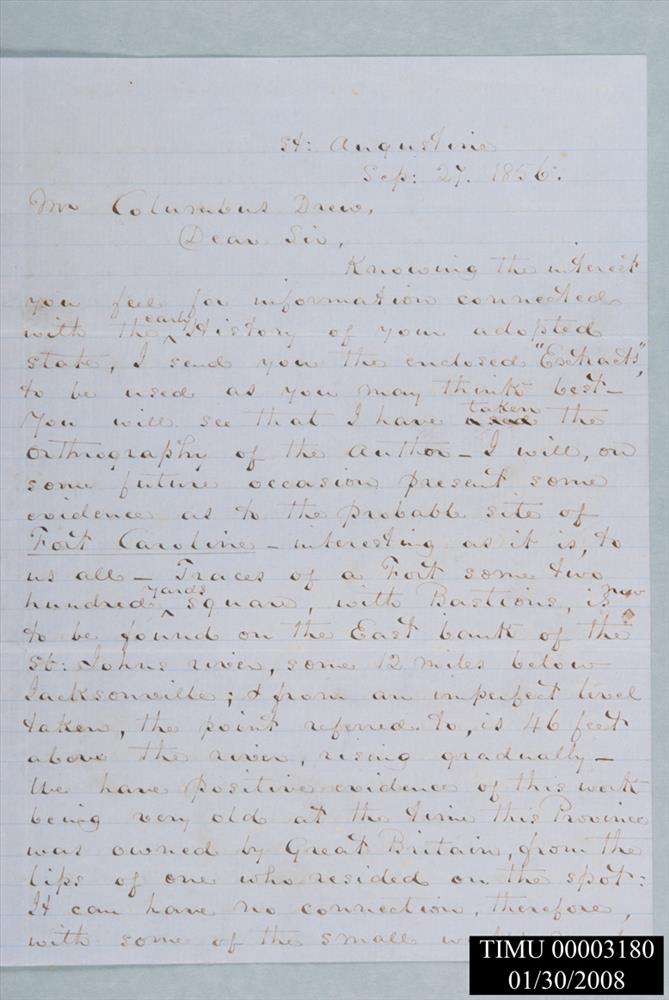 St: Augustine
Sep: 27. 1856.
Mr Columbus Drew,
Dear Sir,
Knowing the interest
you feel for information connected
with the early History of your adopted
state, I send you the enclosed "Extracts",
to be used as you may think best—
You will see that I have taken the
orthography of the Author— I will, on
some future occasion present some
evidence as to the probable site of
Fort Caroline— interesting as it is, to
us all— Traces of a Fort some two
hundred yards square, with Bastions, is now
to be found on the East bank of the
St: Johns river, some 12 miles below
Jacksonville; & from an imperfect level
taken, the point referred to, is 46 feet
above the river, rising gradually—
We have positive evidence of this work
being very old at the time this Province
was owned by Great Britain, from the
lips of one who resided on the spot:
It can have no connection, therefore,
with some of the small
TIMU 00003180
01/30/2008